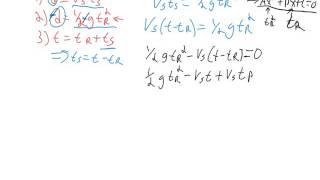 1) d = v_s t_s
2) d = 1/2 g t_R^2 ←
3) t = t_R + t_s
⇒ t_s = t - t_R
v_s t_s = 1/2 g t_R^2
v_s (t - t_R) = 1/2 g t_R^2
1/2 g t_R^2 - v_s (t - t_R) = 0
1/2 g t_R^2 - v_s t + v_s t p
Ax^2 + Bx + C = 0
t_R^2 t_R